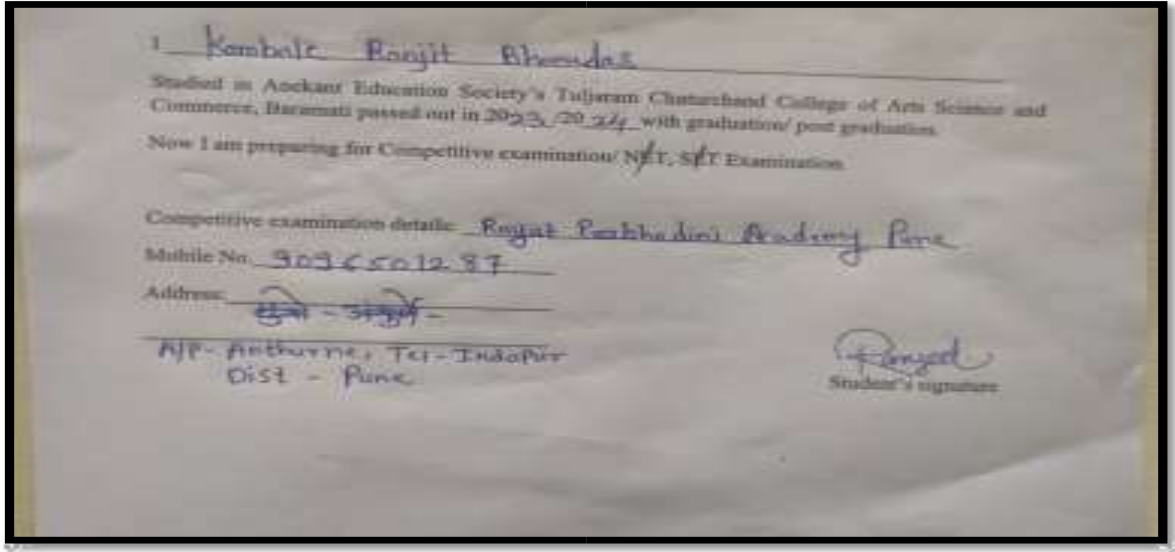 I Kamble Ranjit Bhamdas
Studied in Anekant Education Society's Tuljaram Chaturchand College of Arts Science and
Commerce, Baramati passed out in 2023/2024 with graduation/ post graduation.
Now I am preparing for Competitive examination/ NET, SET Examination
Competitive examination details: Rayat Prabhodini Academy Pune
Mobile No. 9096501287
Address:
A/P- Anthurne, Tal- Indapur
Dist - Pune
Ranjeet
Student's signature